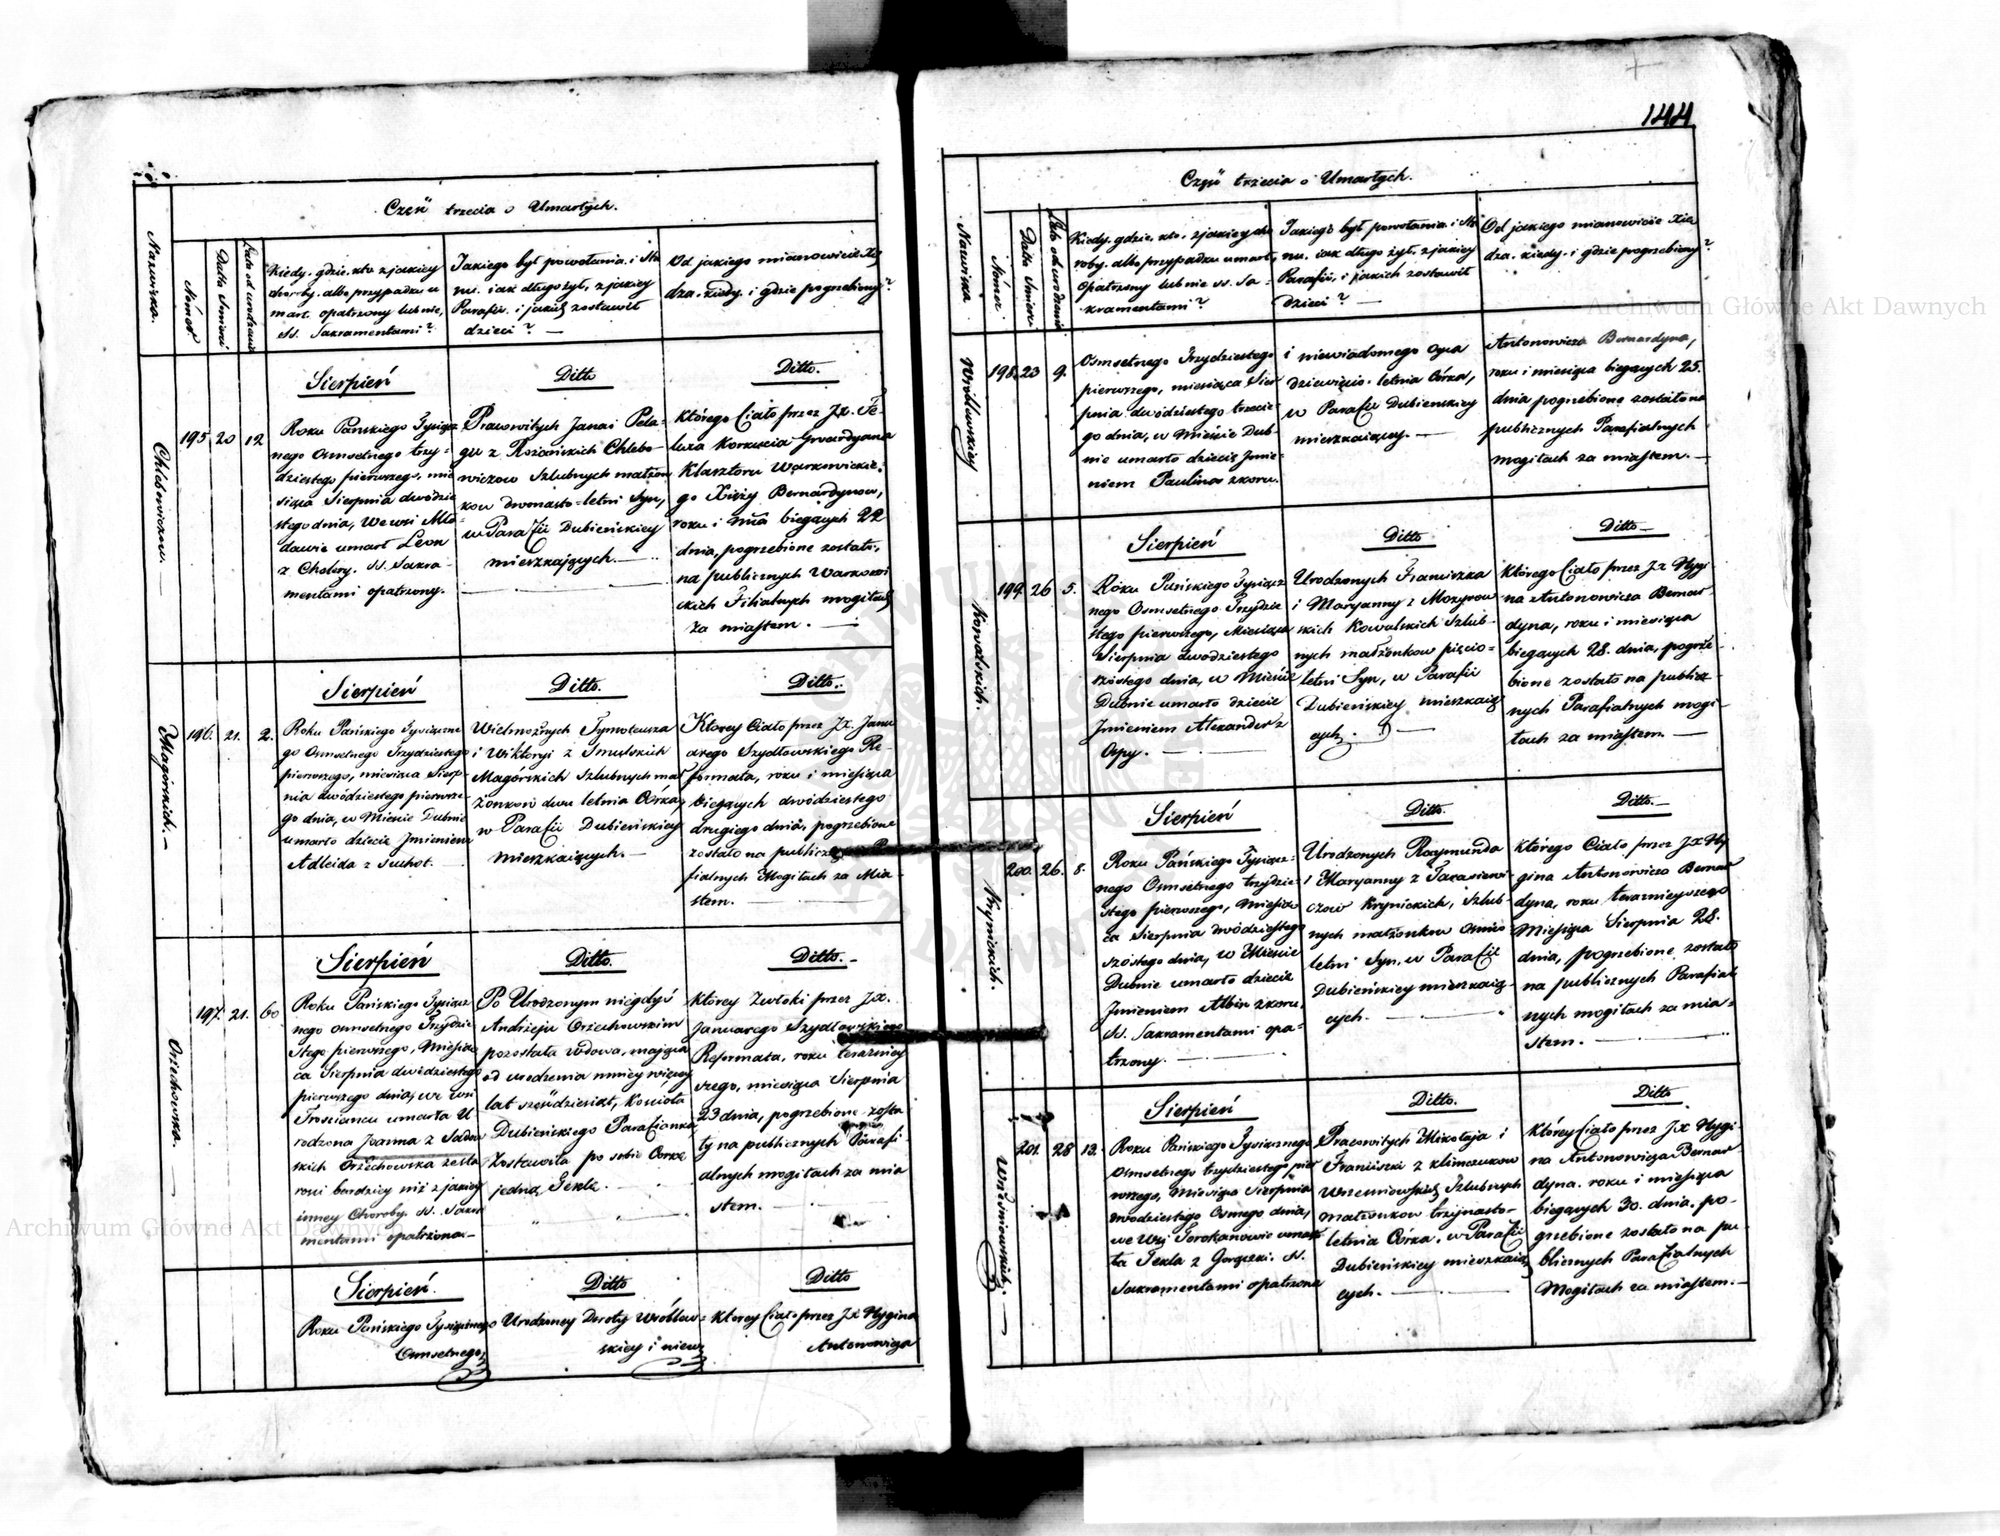 144
Część trzecia o Umarłych.
Nazwiska.
Numer
Datta Śmierci
Lata od urodzenia
Kiedy, gdzie, kto z jakiey
choroby, albo przypadku u
marł, opatrzony lub nie,
SS. Sakramentami?
Jakiego był powołania i Sta
nu, i jak długo żył, z jakiey
Parafii, i jakich zostawił
dzieci? —
Od jakiego mianowicie Xię
dza, kiedy, i gdzie pogrzebiony?
Chlebowiczow. —
195
20
12
Sierpień
Roku Pańskiego Tysiącz
nego Osmsetnego trzy-
dziestego pierwszego, mie
siąca Sierpnia dwódzie
stego dnia, we wsi Mło-
dawie umarł Leon
z Cholery. SS. Sakra-
mentami opatrzony.
Ditto
Pracowitych Jana i Pela-
gii z Rożańskich Chlebo-
wiczow Szlubnych małżon
kow dwónasto-letni Syn,
w Parafii Dubieńskiey
mieszkających. —
Ditto.
którego Ciało przez Jx. Fe-
lixa Korkucia Gwardyana
Klasztoru Warkowickie-
go Xięży Bernardynow,
roku i mca bieżących 22
dnia, pogrzebione zostało,
na publicznych Warkowi
ckich Filialnych mogiłach
za miastem. —
Magórskich. —
196.
21.
2.
Sierpień
Roku Pańskiego Tysiączne
go Osmsetnego Trzydziestego
pierwszego, miesiąca Sierp-
nia dwódziestego pierwsze-
go dnia, w Mieście Dubnie
umarło dziecie Jmieniem
Adleida z Suchot.
Ditto.
Wielmożnych Tymoteusza
i Wiktoryi z Smulskich
Magórskich Szlubnych mał
żonkow dwu letnia Córka,
w Parafii Dubieńskiey
mieszkaiących. —
Ditto.
Ktorey Ciało przez Jx. Janu
arego Szydłowskiego Re-
formata, roku i miesiąca
bieżących dwódziestego
drugiego dnia, pogrzebione
zostało na publicznych Para
fialnych Mogiłach za Mia-
stem.
Orzechowska. —
197.
21.
60
Sierpień
Roku Pańskiego Tysiącz
nego osmsetnego Trzydzie
stego pierwszego, Miesią
ca Sierpnia dwódziestego
pierwszego dnia, we wsi
Trościańcu umarła U
rodzona Joanna z Sados
skich Orzechowska ze sta
rości bardziey niż z jakiey
inney Choroby. SS. Sakra
mentami opatrzona —
Ditto.
Po Urodzonym niegdyś
Andrzeju Orzechowskim
pozostała wdowa, mająca
od urodzenia mniey więcey
lat sześćdziesiąt, Kościoła
Dubieńskiego Parafianka,
Zostawiła po sobie Corkę
jedną Teklę.
Ditto. —
którey Zwłoki przez Jx.
Januarego Szydłowskiego
Reformata, roku teraźniey
szego, miesiąca Sierpnia
23 dnia, pogrzebione zosta
ły na publicznych Parafi
alnych mogiłach za mia
stem.
Sierpień.
Roku Pańskiego Tysiącznego
Osmsetnego
Ditto
Urodzoney Doroty Wróblew-
skiey i niew
Ditto
ktorey Ciało przez Jx Hygina
Antonowicza
Część trzecia o Umarłych.
Nazwiska.
Numer
Datta Śmierci
Lata od urodzenia
Kiedy, gdzie, kto, z jakiey cho
roby, albo przypadku umarł,
opatrzony lub nie SS. Sa-
kramentami?
Jakiego był powołania i Sta
nu, i jak długo żył, z jakiey
Parafii, i jakich zostawił
dzieci? —
Od jakiego mianowicie Xię
dza, kiedy, i gdzie pogrzebiony?
Wróblewskiey
198.
23
9.
Osmsetnego Trzydziestego
pierwszego, miesiąca Sier
pnia dwódziestego trzecie-
go dnia, w Mieście Dub-
nie umarło dziecie Jmie-
niem Paulina z koru.
i niewiadomego Oyca
dziewięcio-letnia Córka,
w Parafii Dubieńskiey
mieszkaiącey. —
Antonowicza Bernardyna,
roku i miesiąca bieżących 25.
dnia pogrzebione zostało na
publicznych Parafialnych
mogiłach za miastem. —
Kowalskich.
199.
26
5.
Sierpień
Roku Pańskiego Tysiącz
nego Osmsetnego Trzydzie
stego pierwszego, Miesiąca
Sierpnia dwodziestego
szóstego dnia, w Mieście
Dubnie umarło dziecie
Jmieniem Alexander z
Ospy.
Ditto
Urodzonych Franciszka
i Maryanny z Mozyrow
skich Kowalskich Szlub-
nych małżonkow pięcio-
letni Syn, w Parafii
Dubieńskiey mieszkaią
cych.
Ditto —
którego Ciało przez Jx Hygi
na Antonowicza Bernar
dyna, roku i miesiąca
bieżących 28. dnia, pogrze-
bione zostało na publicz
nych Parafialnych mogi-
łach za miastem. —
Krynickich.
200.
26.
8.
Sierpień
Roku Pańskiego Tysiącz-
nego Osmsetnego trzydzie-
stego pierwszego, Miesią
ca Sierpnia dwódziestego
szóstego dnia, w Mieście
Dubnie umarło dziecie
Jmieniem Albin z koru,
SS. Sakramentami opa-
trzony.
Ditto.
Urodzonych Raymunda
i Maryanny z Tarasiewi
czow Krynickich, Szlub-
nych małżonkow osmio
letni Syn, w Parafii
Dubieńskiey mieszkaią-
cych.
Ditto. —
którego Ciało przez Jx Hy
gina Antonowicza Bernar
dyna, roku teraznieyszego
Miesiąca Sierpnia 28.
dnia, pogrzebione zostało
na publicznych Parafial
nych mogiłach za mia-
stem.
Wrzesniowskich. —
201.
28
13.
Sierpień
Roku Pańskiego Tysiącznego
Osmsetnego trzydziestego pier
wszego, Miesiąca Sierpnia
dwodziestego Osmego dnia,
we Wsi Sorokanowie umar
ła Tekla z Gorączki. SS.
Sakramentami opatrzona
Ditto.
Pracowitych Mikołaja i
Franciszki z Klimczukow
Wrzesniowskich Szlubnych
małżonkow trzynasto-
letnia Córka, w Parafii
Dubieńskiey mieszkaią
cych.
Ditto
którey Ciało przez Jx Hygi
na Antonowicza Bernar-
dyna, roku i miesiąca
bieżących 30. dnia, po-
grzebione zostało na pu-
blicznych Parafialnych
Mogiłach za miastem. —
Archiwum Główne Akt Dawnych
Archiwum Główne Akt Dawnych